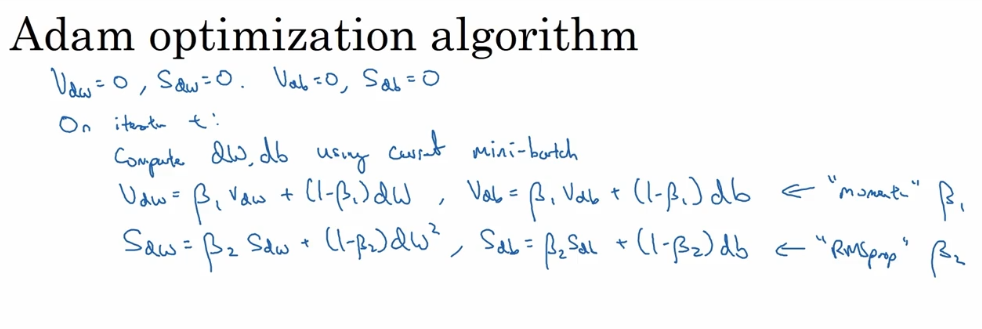 Adam optimization algorithm
V_dw = 0, S_dw = 0. V_db = 0, S_db = 0
On iteration t:
Compute dW, db using current mini-batch
V_dw = β₁ V_dw + (1-β₁) dW, V_db = β₁ V_db + (1-β₁) db ← "moment" β₁
S_dw = β₂ S_dw + (1-β₂) dW², S_db = β₂ S_db + (1-β₂) db ← "RMSprop" β₂